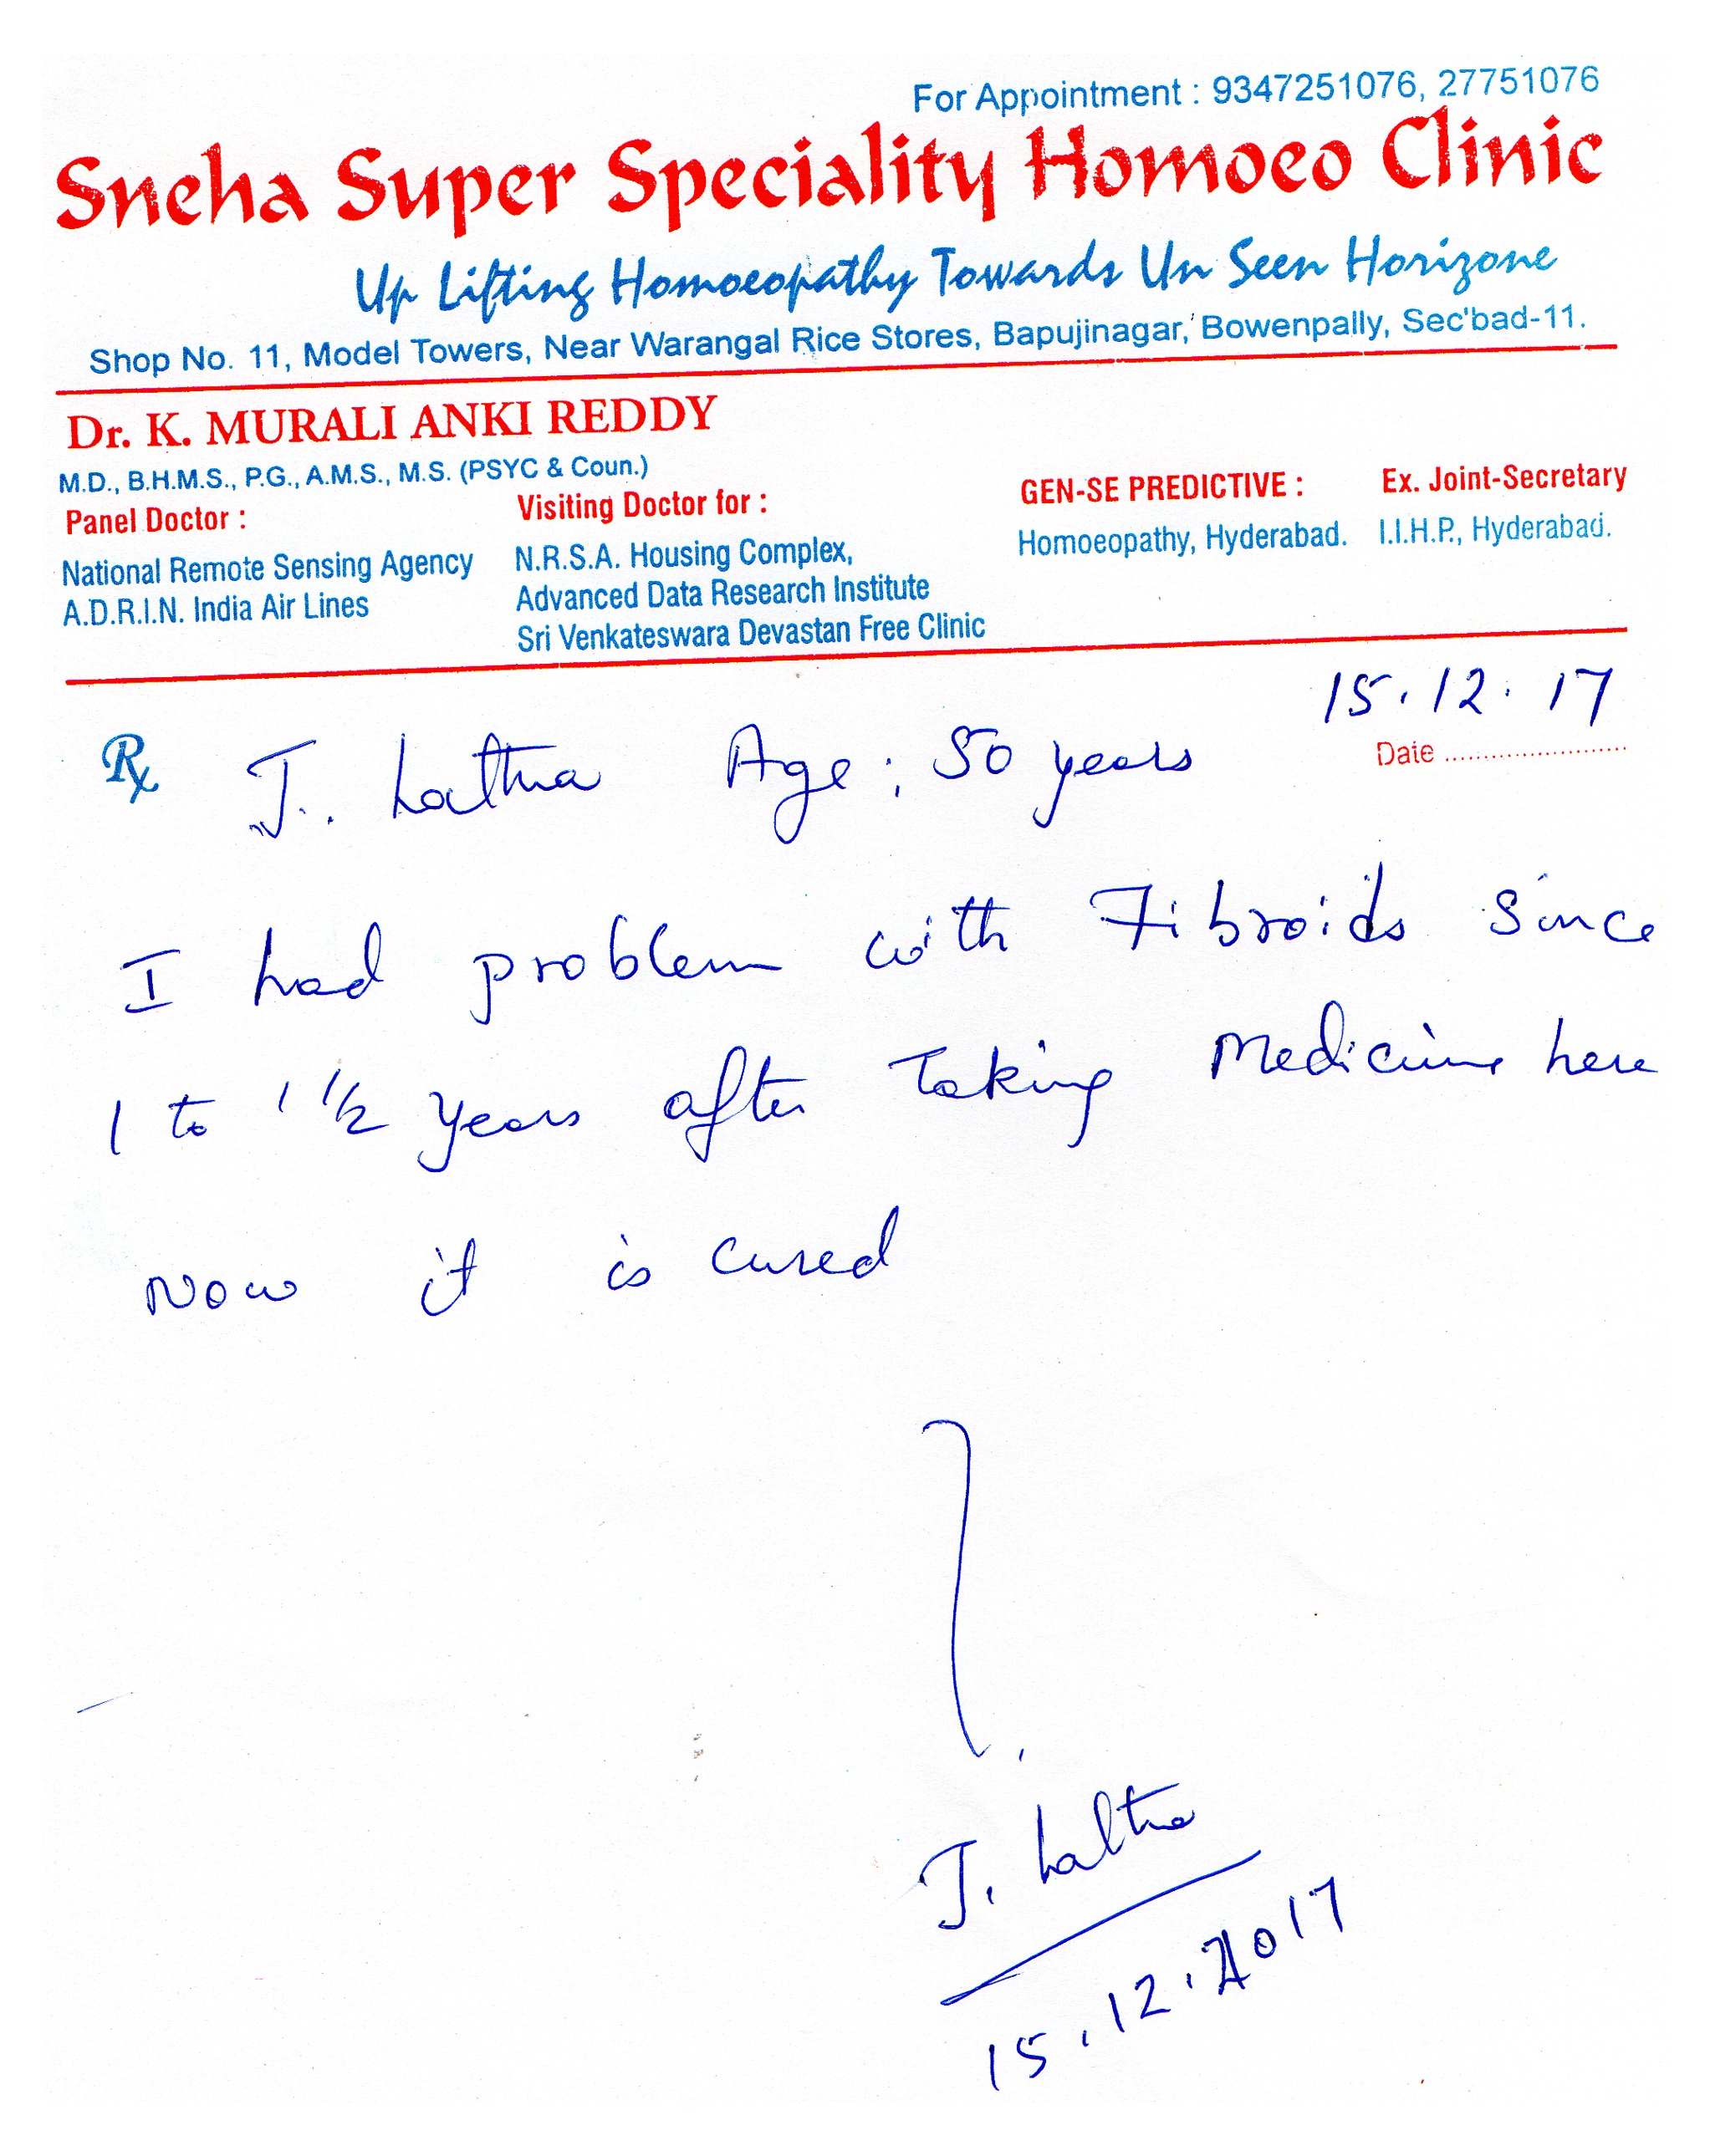 For Appointment : 9347251076, 27751076
Sneha Super Speciality Homoeo Clinic
Up Lifting Homoeopathy Towards Un Seen Horizone
Shop No. 11, Model Towers, Near Warangal Rice Stores, Bapujinagar, Bowenpally, Sec'bad-11.
Dr. K. MURALI ANKI REDDY
M.D., B.H.M.S., P.G., A.M.S., M.S. (PSYC & Coun.)
Panel Doctor :
National Remote Sensing Agency
A.D.R.I.N. India Air Lines
Visiting Doctor for :
N.R.S.A. Housing Complex,
Advanced Data Research Institute
Sri Venkateswara Devastan Free Clinic
GEN-SE PREDICTIVE :
Homoeopathy, Hyderabad.
Ex. Joint-Secretary
I.I.H.P., Hyderabad.
15.12.17
Date ........................
Rx J. Lattha Age : 50 years
I had problem with Fibroids Since
1 to 1 1/2 years after Taking Medicine here
Now it is cured
J. Laltha
15.12.2017